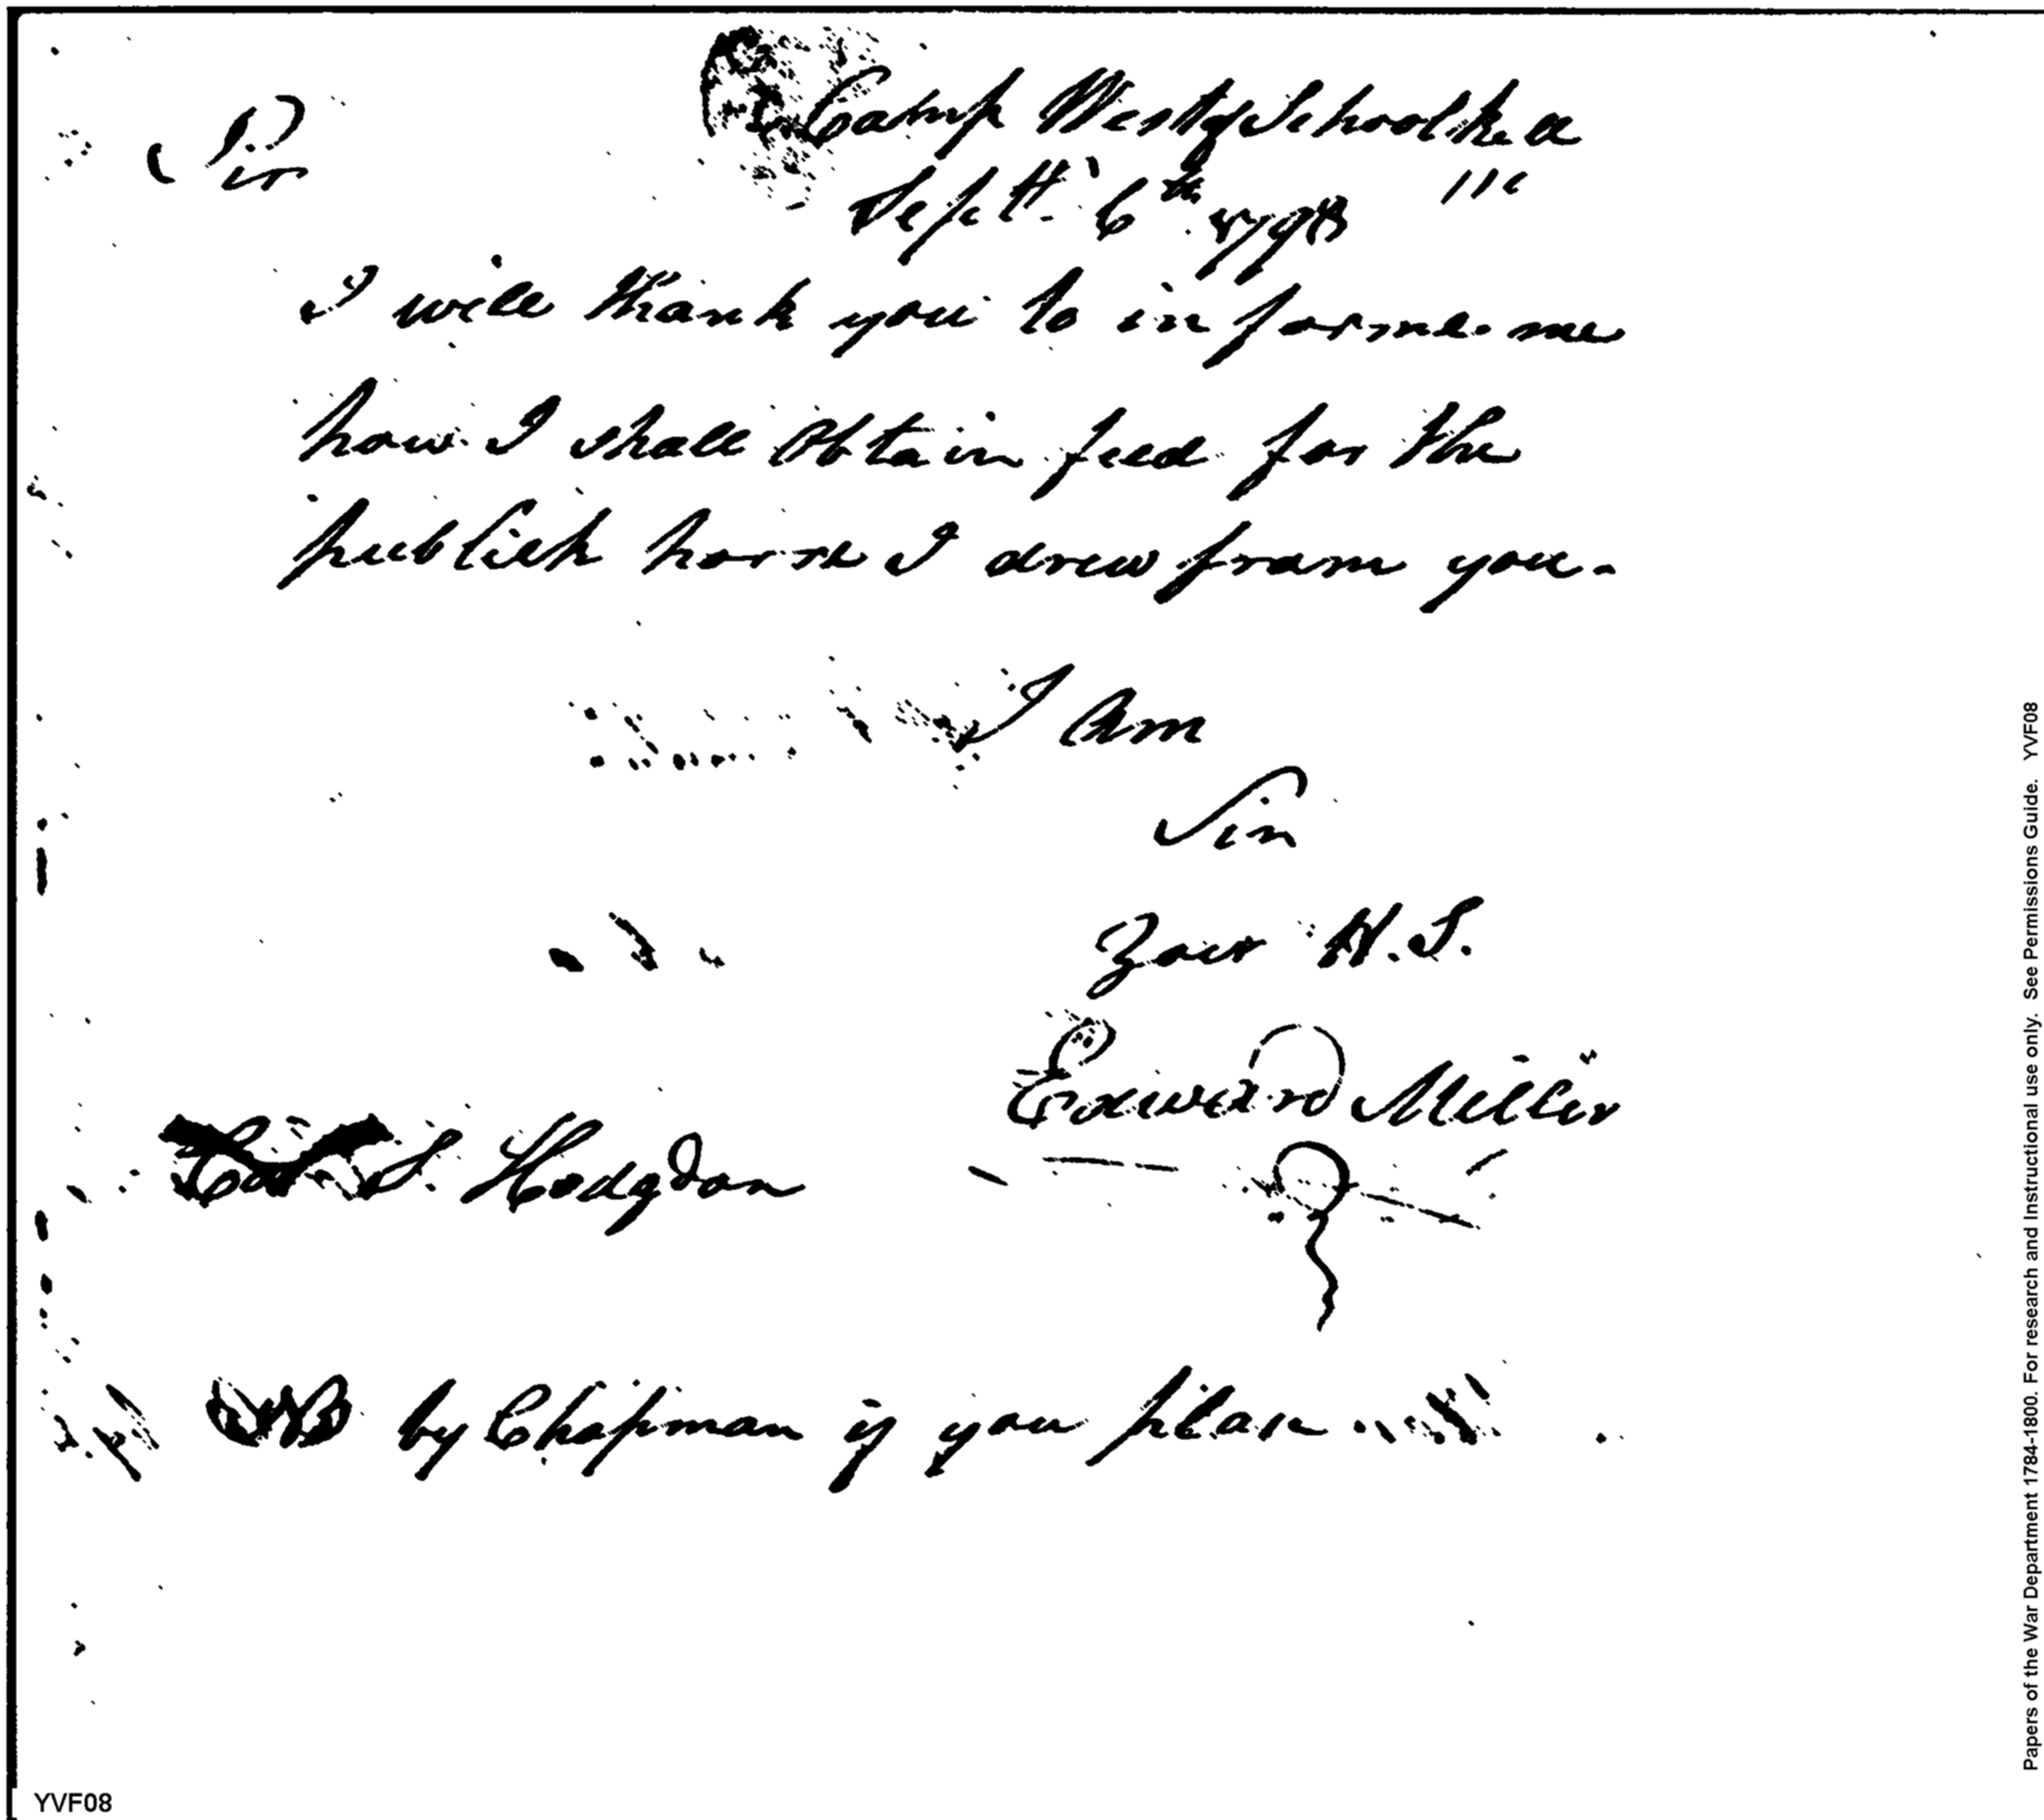 Camp West of Schoolkea
Sir
Sept. 6th 1798
I will thank you to informe me
how I shall Obtain feed for the
publick horse I drew from you.
I Am
Sir
Your H.S.
Edward Miller
S. Hodgdon
by Chapman if you please
Papers of the War Department 1784-1800. For research and Instructional use only. See Permissions Guide. YVF08
YVF08